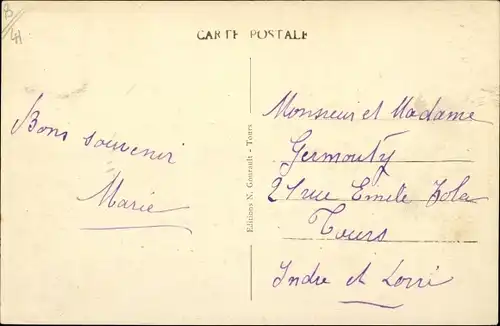 CARTE POSTALE
Bons souvenir
Marie
Editions N. Gourault - Tours
Monsieur et Madame
Germouty
21 rue Emile Zola
Tours
Indre et Loire